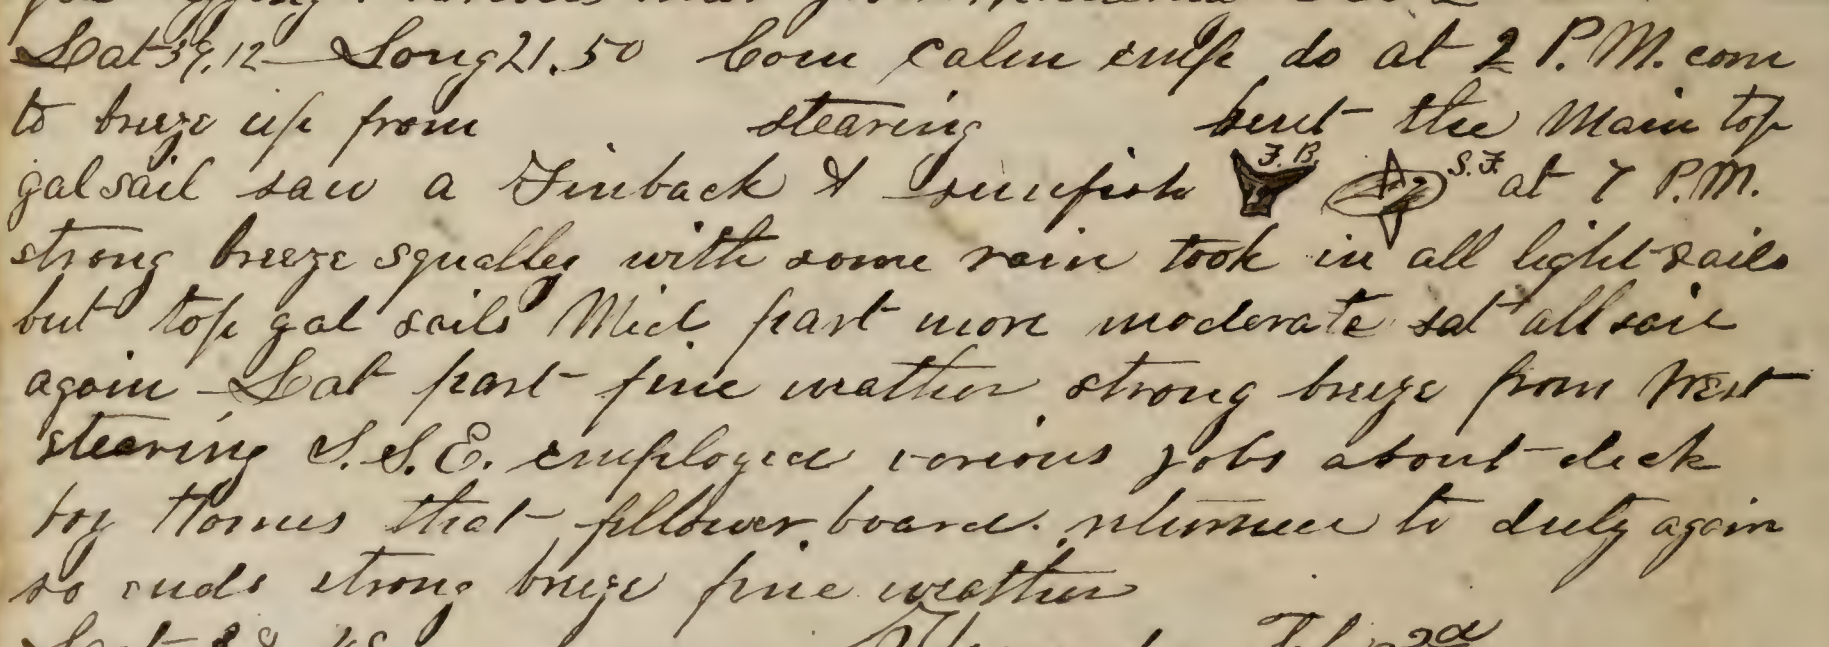 Lat 39.12 Long 21.50 Com calm emp do at 2 P.M. com
to breeze up from stearing bent the Main top
galsail saw a Finback & sunfish F.B. S.F. at 7 P.M.
strong breeze squalley with some rain took in all light sails
but top gal sails Mid part more moderate sat all sail
again Lat part fine weather strong breeze from West
stearing S.S.E. employed various jobs about deck
boy that board. returned to duty again
so ends strong breeze fine weather